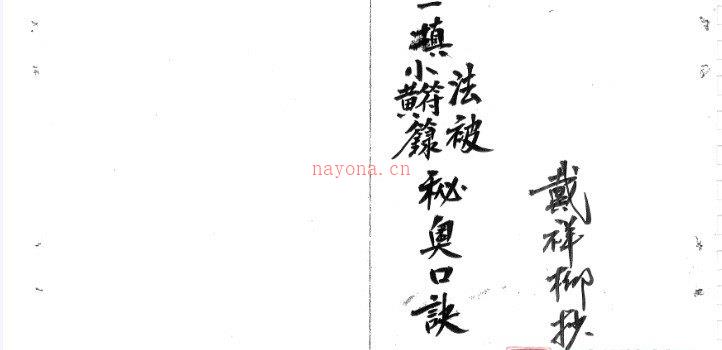 戴祥柳抄
法被
一填小黄符籙秘奥口訣
nayona.cn